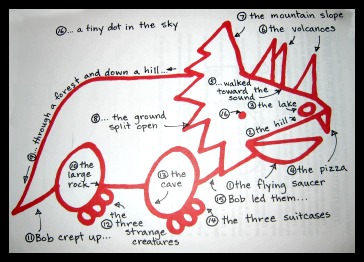 ⑯... a tiny dot in the sky
⑦ the mountain slope
⑥ the volcanoes
⑨... through a forest and down a hill...
⑤... walked
toward the
sound
③ the lake
⑧... the ground
split open
⑯
② the hill
④ the pizza
⑩ the
large
rock
⑬
the
cave
① the flying saucer
⑮ Bob led them...
⑪ Bob crept up...
the
⑫ three
strange
creatures
⑭ the three suitcases